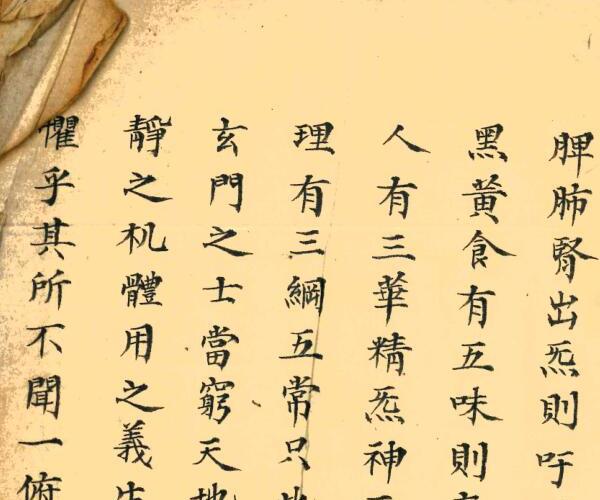 脾肺腎出炁則吁
黑黃食有五味則
人有三華精炁神
理有三綱五常只
玄門之士當窮天地
靜之机體用之義
懼乎其所不聞一俯